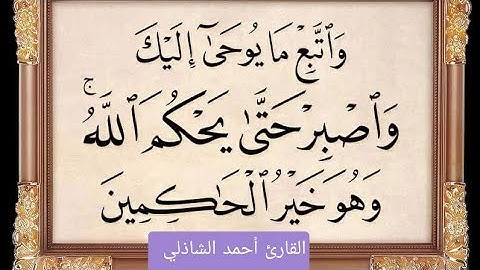 وَٱتَّبِعْ مَا يُوحَىٰٓ إِلَيْكَ
وَٱصْبِرْ حَتَّىٰ يَحْكُمَ ٱللَّهُ ۚ
وَهُوَ خَيْرُ ٱلْحَـٰكِمِينَ
القارئ أحمد الشاذلي